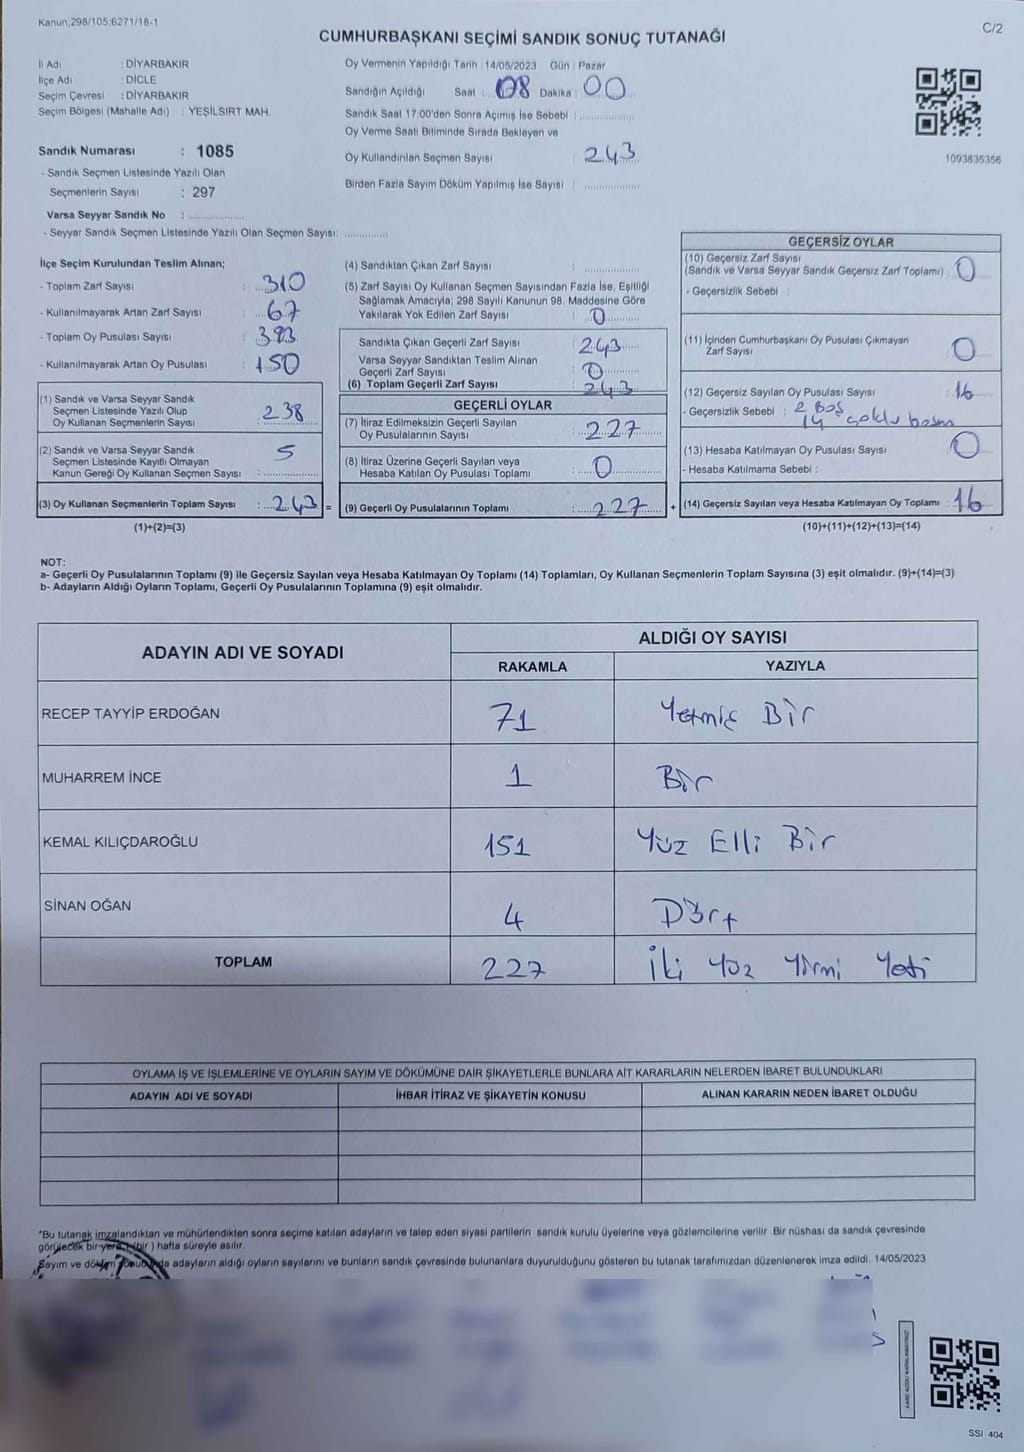 Kanun;298/105;6271/18-1
C/2
CUMHURBAŞKANI SEÇİMİ SANDIK SONUÇ TUTANAĞI
İl Adı : DİYARBAKIR
İlçe Adı : DİCLE
Seçim Çevresi : DİYARBAKIR
Seçim Bölgesi (Mahalle Adı) : YEŞİLSIRT MAH.
Sandık Numarası : 1085
- Sandık Seçmen Listesinde Yazılı Olan
Seçmenlerin Sayısı : 297
Varsa Seyyar Sandık No :
- Seyyar Sandık Seçmen Listesinde Yazılı Olan Seçmen Sayısı:
Oy Vermenin Yapıldığı Tarih : 14/05/2023 Gün : Pazar
Sandığın Açıldığı Saat : 08 Dakika : 00
Sandık Saat 17:00'den Sonra Açımış İse Sebebi :
Oy Verme Saati Bitiminde Sırada Bekleyen ve
Oy Kullandırılan Seçmen Sayısı : 243
Birden Fazla Sayım Döküm Yapılmış İse Sayısı :
1093836356
İlçe Seçim Kurulundan Teslim Alınan;
- Toplam Zarf Sayısı : 310
- Kullanılmayarak Artan Zarf Sayısı : 67
- Toplam Oy Pusulası Sayısı : 393
- Kullanılmayarak Artan Oy Pusulası : 150
(1) Sandık ve Varsa Seyyar Sandık
Seçmen Listesinde Yazılı Olup
Oy Kullanan Seçmenlerin Sayısı : 238
(2) Sandık ve Varsa Seyyar Sandık
Seçmen Listesinde Kayıtlı Olmayan
Kanun Gereği Oy Kullanan Seçmen Sayısı : 5
(3) Oy Kullanan Seçmenlerin Toplam Sayısı : 243 =
(1)+(2)=(3)
(4) Sandıktan Çıkan Zarf Sayısı :
(5) Zarf Sayısı Oy Kullanan Seçmen Sayısından Fazla İse, Eşitliği
Sağlamak Amacıyla; 298 Sayılı Kanunun 98. Maddesine Göre
Yakılarak Yok Edilen Zarf Sayısı : 0
Sandıkta Çıkan Geçerli Zarf Sayısı : 243
Varsa Seyyar Sandıktan Teslim Alınan
Geçerli Zarf Sayısı : 0
(6) Toplam Geçerli Zarf Sayısı : 243
GEÇERLİ OYLAR
(7) İtiraz Edilmeksizin Geçerli Sayılan
Oy Pusulalarının Sayısı : 227
(8) İtiraz Üzerine Geçerli Sayılan veya
Hesaba Katılan Oy Pusulası Toplamı : 0
(9) Geçerli Oy Pusulalarının Toplamı : 227 +
GEÇERSİZ OYLAR
(10) Geçersiz Zarf Sayısı
(Sandık ve Varsa Seyyar Sandık Geçersiz Zarf Toplamı) : 0
- Geçersizlik Sebebi :
(11) İçinden Cumhurbaşkanı Oy Pusulası Çıkmayan
Zarf Sayısı : 0
(12) Geçersiz Sayılan Oy Pusulası Sayısı : 16
- Geçersizlik Sebebi : 2 Boş
14 çoklu basım
(13) Hesaba Katılmayan Oy Pusulası Sayısı : 0
- Hesaba Katılmama Sebebi :
(14) Geçersiz Sayılan veya Hesaba Katılmayan Oy Toplamı : 16
(10)+(11)+(12)+(13)=(14)
NOT:
a- Geçerli Oy Pusulalarının Toplamı (9) ile Geçersiz Sayılan veya Hesaba Katılmayan Oy Toplamı (14) Toplamları, Oy Kullanan Seçmenlerin Toplam Sayısına (3) eşit olmalıdır. (9)+(14)=(3)
b- Adayların Aldığı Oyların Toplamı, Geçerli Oy Pusulalarının Toplamına (9) eşit olmalıdır.
ADAYIN ADI VE SOYADI
ALDIĞI OY SAYISI
RAKAMLA YAZIYLA
RECEP TAYYİP ERDOĞAN 71 Yetmiş Bir
MUHARREM İNCE 1 Bir
KEMAL KILIÇDAROĞLU 151 Yüz Elli Bir
SİNAN OĞAN 4 Dört
TOPLAM 227 İki Yüz Yirmi Yedi
OYLAMA İŞ VE İŞLEMLERİNE VE OYLARIN SAYIM VE DÖKÜMÜNE DAİR ŞİKAYETLERLE BUNLARA AİT KARARLARIN NELERDEN İBARET BULUNDUKLARI
ADAYIN ADI VE SOYADI İHBAR İTİRAZ VE ŞİKAYETİN KONUSU ALINAN KARARIN NEDEN İBARET OLDUĞU
*Bu tutanak imzalandıktan ve mühürlendikten sonra seçime katılan adayların ve talep eden siyasi partilerin sandık kurulu üyelerine veya gözlemcilerine verilir. Bir nüshası da sandık çevresinde
görülecek bir yere 1 (bir) hafta süreyle asılır.
Sayım ve döküm sonucunda adayların aldığı oyların sayılarını ve bunların sandık çevresinde bulunanlara duyurulduğunu gösteren bu tutanak tarafımızdan düzenlenerek imza edildi. 14/05/2023
SSI 404